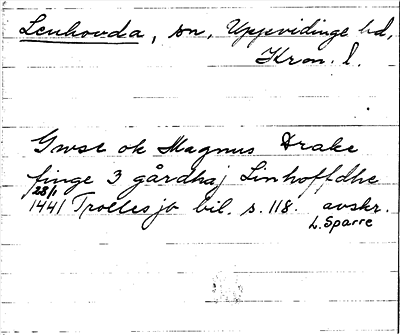 Lenhovda, sn, Uppvidinge hd,
Kron. l.
Gwse ok Magnus Drake
finge 3 gårdhaj Linhoffdhe
28/1
1441 Trollesjb bil. s. 118. avskr.
L. Sparre